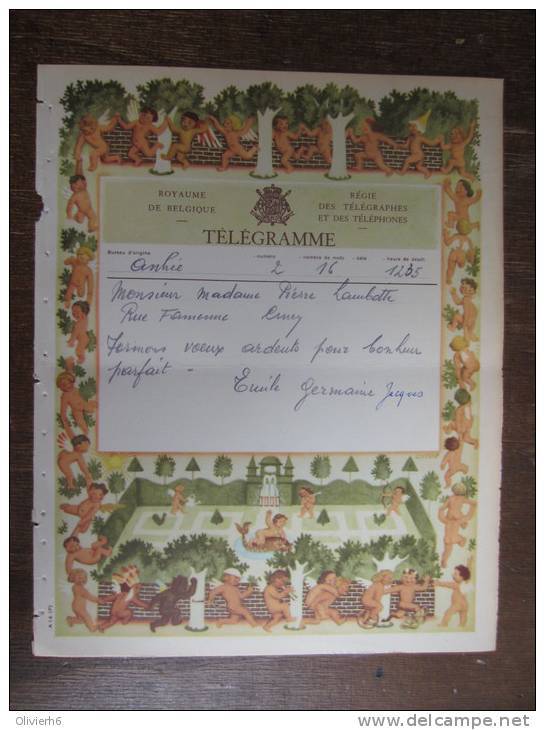 ROYAUME
DE BELGIQUE
RÉGIE
DES TÉLÉGRAPHES
ET DES TÉLÉPHONES
TÉLÉGRAMME
Bureau d'origine numéro nombre de mots date heure de dépôt
Anhée 2 16 1235
Monsieur Madame Pierre Lambotte
Rue Famenne Ciney
Formons voeux ardents pour bonheur
parfait -
Emile Germaine Jacques
Olivierh6
www.delcampe.net